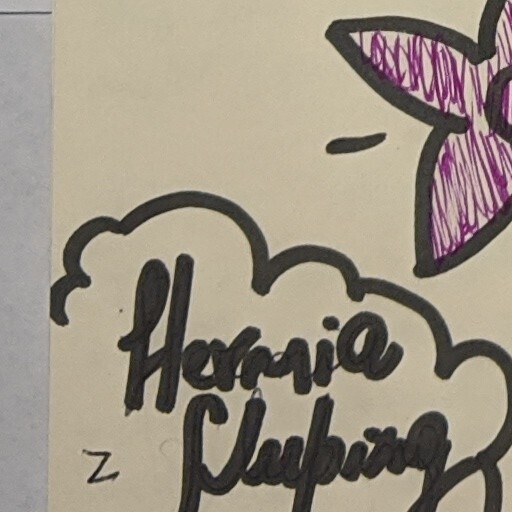 Hermia
Sleeping
z